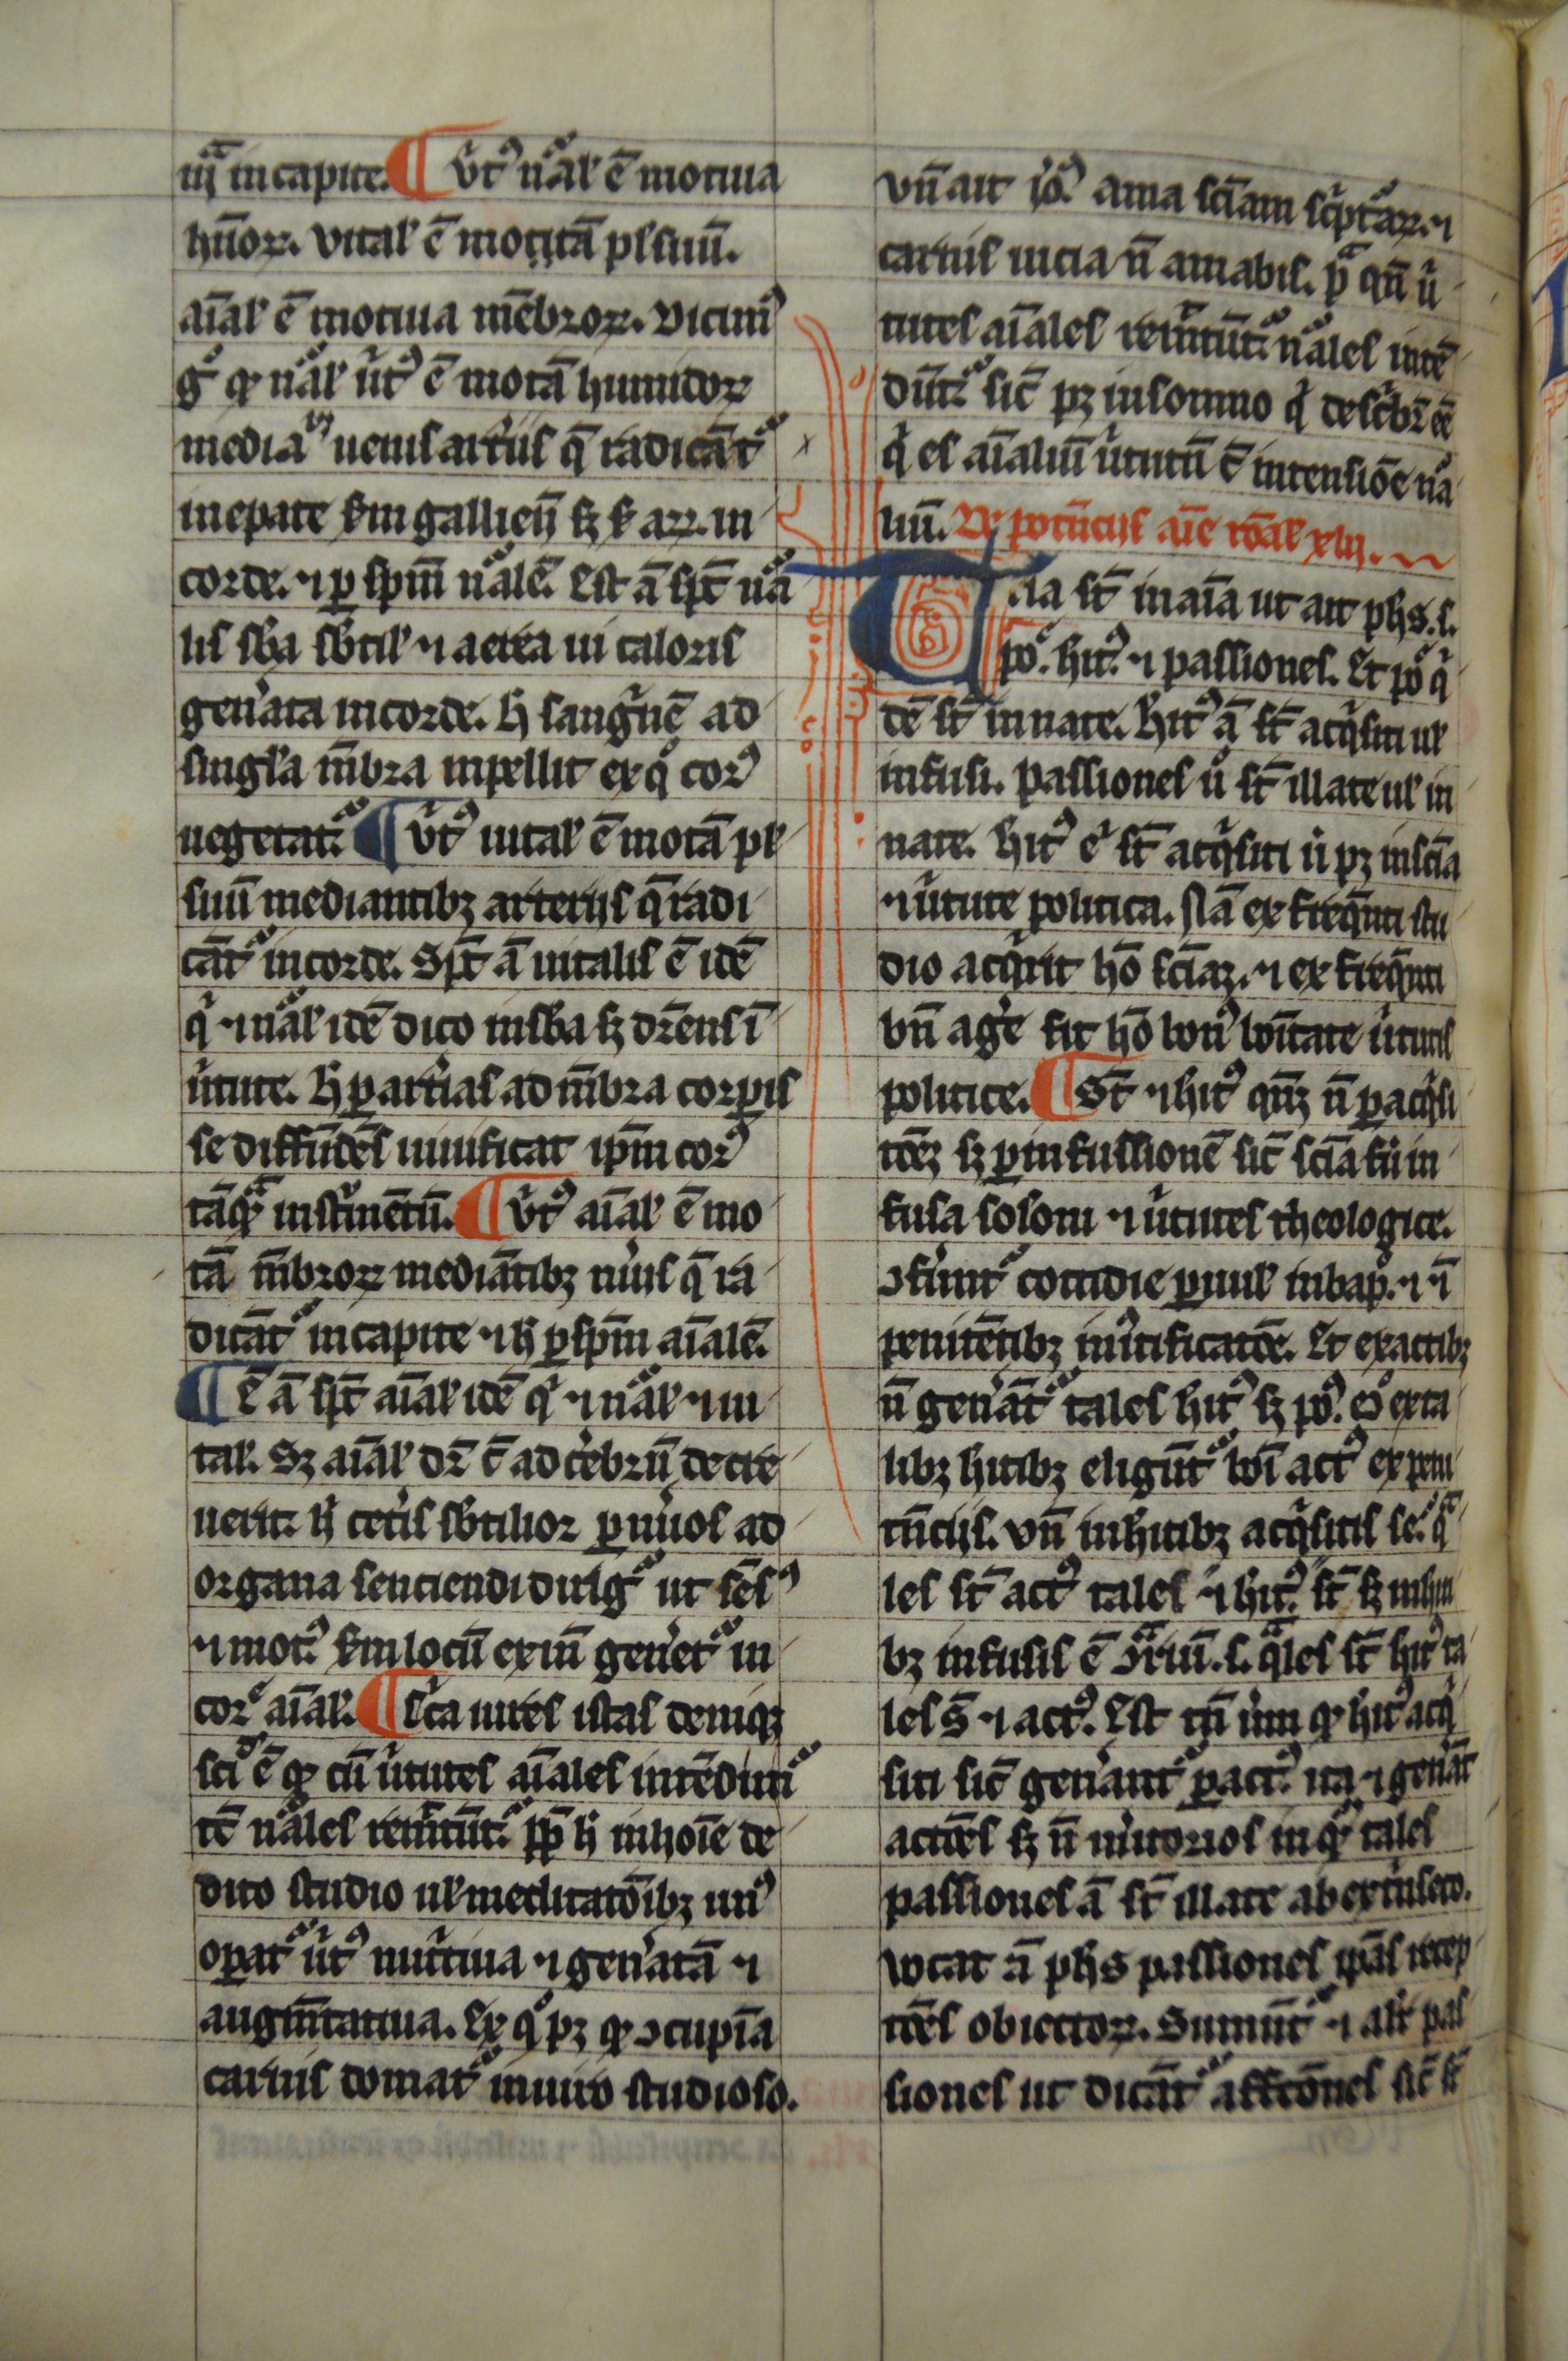 iijᵃ in capite. ¶ v̾tꝰ nᵃal᷒ ē motiua
hūoꝝ. vital᷒ ē motiꞇā plsuū.
aīal᷒ ē motiua mēbroꝝ. Dicimꝰ
gͦ ꝙ nᵃal᷒ v̾tꝰ ē motā humidoꝝ
mediā uenis art̾iis q̄ radicātᷣ
in epate ẜm gallienū sꝫ ẜ ar. in
corde. ⁊ ꝑ sp̄m nᵃalē. Est ā sp̄c nᵃa
lis sb̄a sb̄til᷒ ⁊ aerea ui caloris
gen̾ata in corde. h̄ sangⁱnē ad
singl᷒a m̄bra inpellit ex qͦ corꝰ
uegetatᷣ ¶ v̾tꝰ uital᷒ ē motā pl
suū mediantibꝫ arteriis q̄ radi
cātᷣ in corde. Sp̄c ā uitalis ē idē
qⁱ ⁊ nᵃal᷒ idē dico in sb̄a sꝫ dr̄ens ī
v̾tute. h̄ ꝑ art̾ias ad m̄bra corꝑis
se diffūdēs uiuificat ip̄m corꝰ
tāqᵃ instⁱmētū. ¶ v̾tꝰ aīal᷒ ē mo
tā m̄broꝝ mediātibꝫ n̾uis q̄ ra
dicātᷣ in capite ⁊ h̄ ꝑ sp̄m aīalē.
¶ E ā sp̄c aīal᷒ idē qⁱ ⁊ nᵃal᷒ ⁊ ui
tal᷒. Sꝫ aīal᷒ dr̄ c̄ ad c̾ebrū decre
uerit. h̄ cet̾is sb̄tilior ꝑ n̾uos ad
organa senciendi dirigᷣ ut sēsꝰ
⁊ motꝰ ẜm locū exin̄ gen̾etᷣ in
corᵉ aīal᷒. ¶ Cͥca uires istas deniqꝫ
sciᵈ ē ꝙ cū v̾tutes aīales intēdūtᷣ
tc̄ nᵃales remittūtᷣ. ꝓp̄ h̄ in hoīe de
dito studio ul᷒ meditatōibꝫ minꝰ
opatᷣ v̾tꝰ nut̾tiua ⁊ gen̾atā ⁊
augm̄tatiua. Ex qͦ pꝫ ꝙ ꝯcupīa
carnis domatᷣ in uiro studioso.
vn̄ ait Ioꝰ. ama sc̄iam sc̾ptᵃaꝝ. ⁊
carnis uicia n̄ amabis. pᵃ qn̄ v̾
tutes aīales remittūtᷣ nᵃales intē
dūtᷣ sic̄ pꝫ in somno qⁱ descⁱbit̾ ēē
qⁱes aīaliū v̾tutū c̄ intensiōe nᵃa
liū. De potēciis aīe rōal᷒ xlii.
Tria st̄ in aīa ut ait ph̄s. s.
poᵉ. hītꝰ. ⁊ passiones. Et poᵉ qⁱ
dē st̄ innate. Hītꝰ ā st̄ acqⁱsiti ul᷒
infusi. passiones uͦ st̄ illate ul᷒ in
nate. Hītꝰ eⁱ st̄ acqⁱsiti ū pꝫ in sc̄ia
⁊ v̾tute politica. Nā ex freqūti stu
dio acqⁱrit hō sc̄iaꝫ. ⁊ ex freqūti
bn̄ ag̾e fit hō bonꝰ bōitate v̾tutis
politice. ¶ St̄ ⁊ hītꝰ qn̄qꝫ n̄ ꝑ acqⁱsi
cōeꝫ sꝫ ꝑ infussionē sic̄ sc̄ia fuͥ in
fusa salom̄ ⁊ v̾tutes theologice.
ꝯfūntᷣ cottidie ꝑuul᷒ in bapᵒ. ⁊ ī
penitētibꝫ iustificatōe. Et ex actibꝫ
n̄ gen̾ātᷣ tales hītꝰ sꝫ pꝰ. ꝯͦ ex ta
libꝫ hītibꝫ eligūtᷣ boī actꝰ ex peni
tēciis. vn̄ in hītibꝫ acqⁱsitis se. qᵃ
les st̄ actꝰ tales ⁊ hītꝰ. st̄ sꝫ in hīti
bꝫ infusis ē ꝯᵃriū. s. qᵃles st̄ hītꝰ ta
les s̄ ⁊ actꝰ. Est tn̄ uͥm ꝙ hītꝰ acqⁱ
siti sic̄ gen̾antᷣ ꝑ actꝰ. ita ⁊ gen̾āt
actōes sꝫ n̄ m̾itorios in qͥ tales
passiones ā st̄ illate ab ext̾inseco.
vocat ā ph̄s passiones ip̄as recep
cōes obiectoꝝ. Sumūtᷣ ⁊ alit̾ pas
siones ut dicātᷣ affcōnes sic̄ st̄